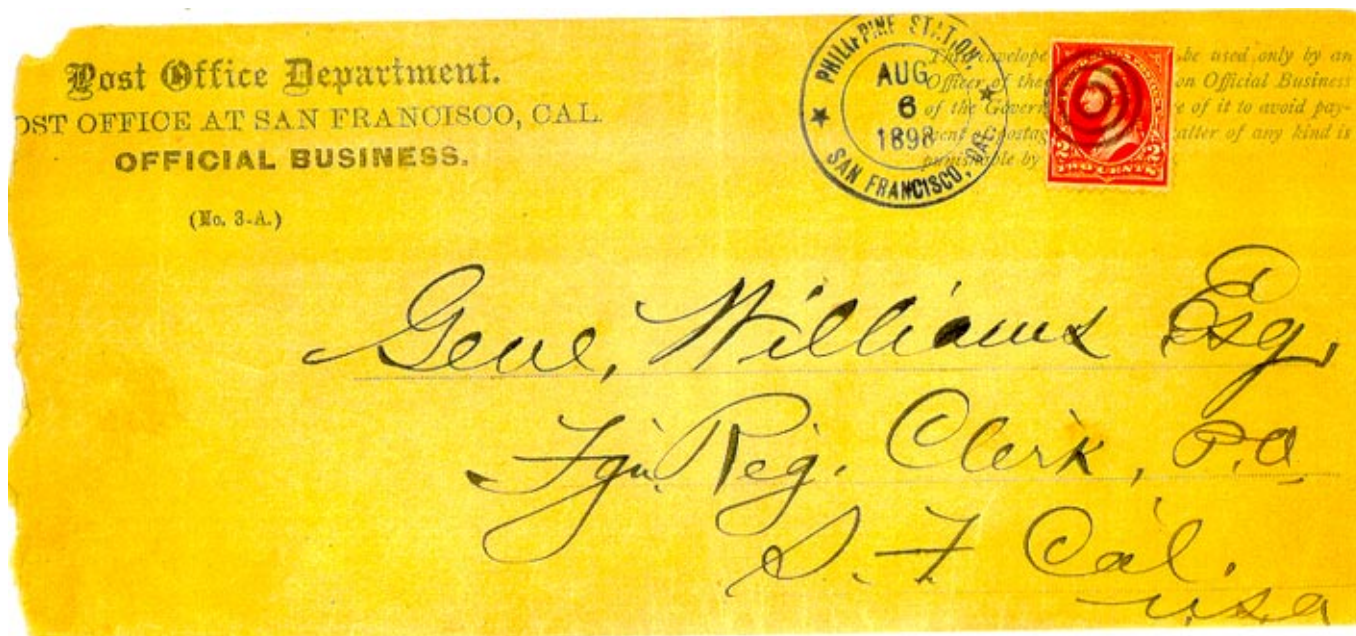 Post Office Department.
OST OFFICE AT SAN FRANCISCO, CAL.
OFFICIAL BUSINESS.
(No. 3-A.)
PHILIPPINE STATION.
AUG
6
1898
SAN FRANCISCO, CAL.
envelope be used only by an
Officer of the on Official Business
of the Govern e of it to avoid pay-
ment of postag atter of any kind is
punishable by
2 2
TWO CENTS
Gene, Williams Esq,
Fgn. Reg. Clerk, P.O
S. F Cal.
U.S.A